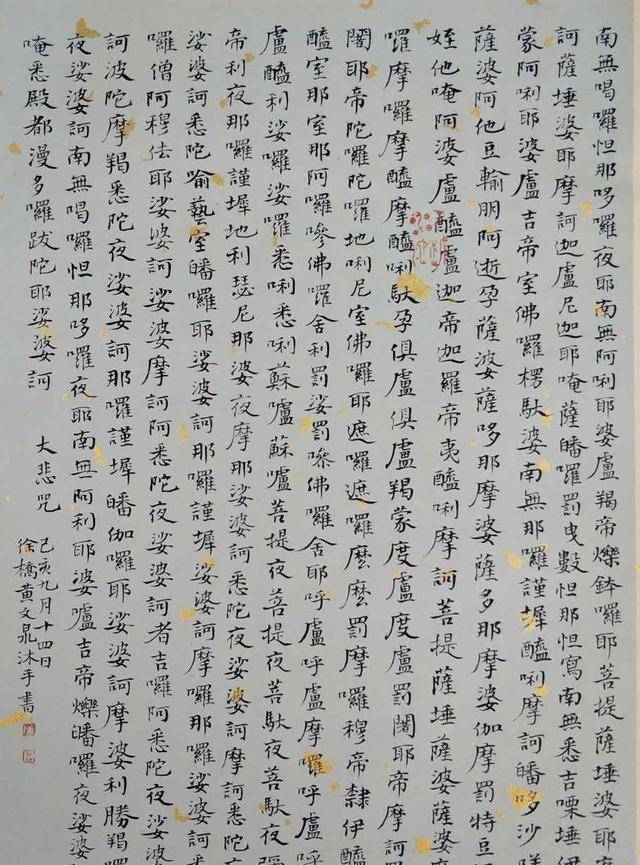 南無喝囉怛那哆囉夜耶南無阿唎耶婆盧羯帝爍鉢囉耶菩提薩埵婆耶
訶薩埵婆耶摩訶迦盧尼迦耶唵薩皤囉罰曳數怛那怛寫南無悉吉嘌埵伊
蒙阿唎耶婆盧吉帝室佛囉楞馱婆南無那囉謹墀醯唎摩訶皤哆沙咩
薩婆阿他豆輸朋阿逝孕薩婆薩哆那摩婆薩多那摩婆伽摩罰特豆
姪他唵阿婆盧醯盧迦帝迦羅帝夷醯唎摩訶菩提薩埵薩婆薩婆
囉摩囉摩醯摩醯唎馱孕俱盧俱盧羯蒙度盧度盧罰闍耶帝摩訶
闍耶帝陀囉陀囉地唎尼室佛囉耶遮囉遮囉麼麼罰摩囉穆帝隸伊醯
醯室那室那阿囉嘇佛囉舍利罰娑罰嘇佛囉舍耶呼盧呼盧摩囉呼盧呼
盧醯利娑囉娑囉悉唎悉唎蘇嚧蘇嚧菩提夜菩提夜菩馱夜菩馱夜彌
帝利夜那囉謹墀地利瑟尼那婆夜摩那娑婆訶悉陀夜娑婆訶摩訶悉陀
娑婆訶悉陀喻藝室皤囉耶娑婆訶那囉謹墀娑婆訶摩囉那囉娑婆訶悉
囉僧阿穆佉耶娑婆訶娑婆摩訶阿悉陀夜娑婆訶者吉囉阿悉陀夜娑婆
訶波陀摩羯悉陀夜娑婆訶那囉謹墀皤伽囉耶娑婆訶摩婆利勝羯囉
夜娑婆訶南無喝囉怛那哆囉夜耶南無阿利耶婆嚧吉帝爍皤囉夜娑婆
唵悉殿都漫多囉跋陀耶娑婆訶 大悲咒
己亥九月十四日
徐橋黃文泉沐手書